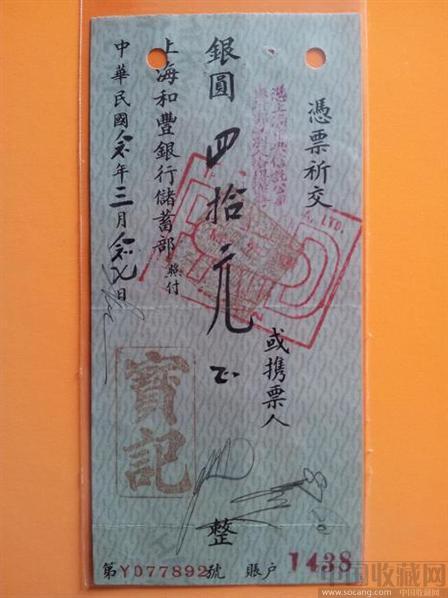 憑票祈交
或携票人
銀圓四拾元正
整
上海和豐銀行儲蓄部照付
中華民國念年三月念日
LTD.
寶記
第Y077892號
賬戶 1438
中国收藏网
www.socang.com 中国收藏网